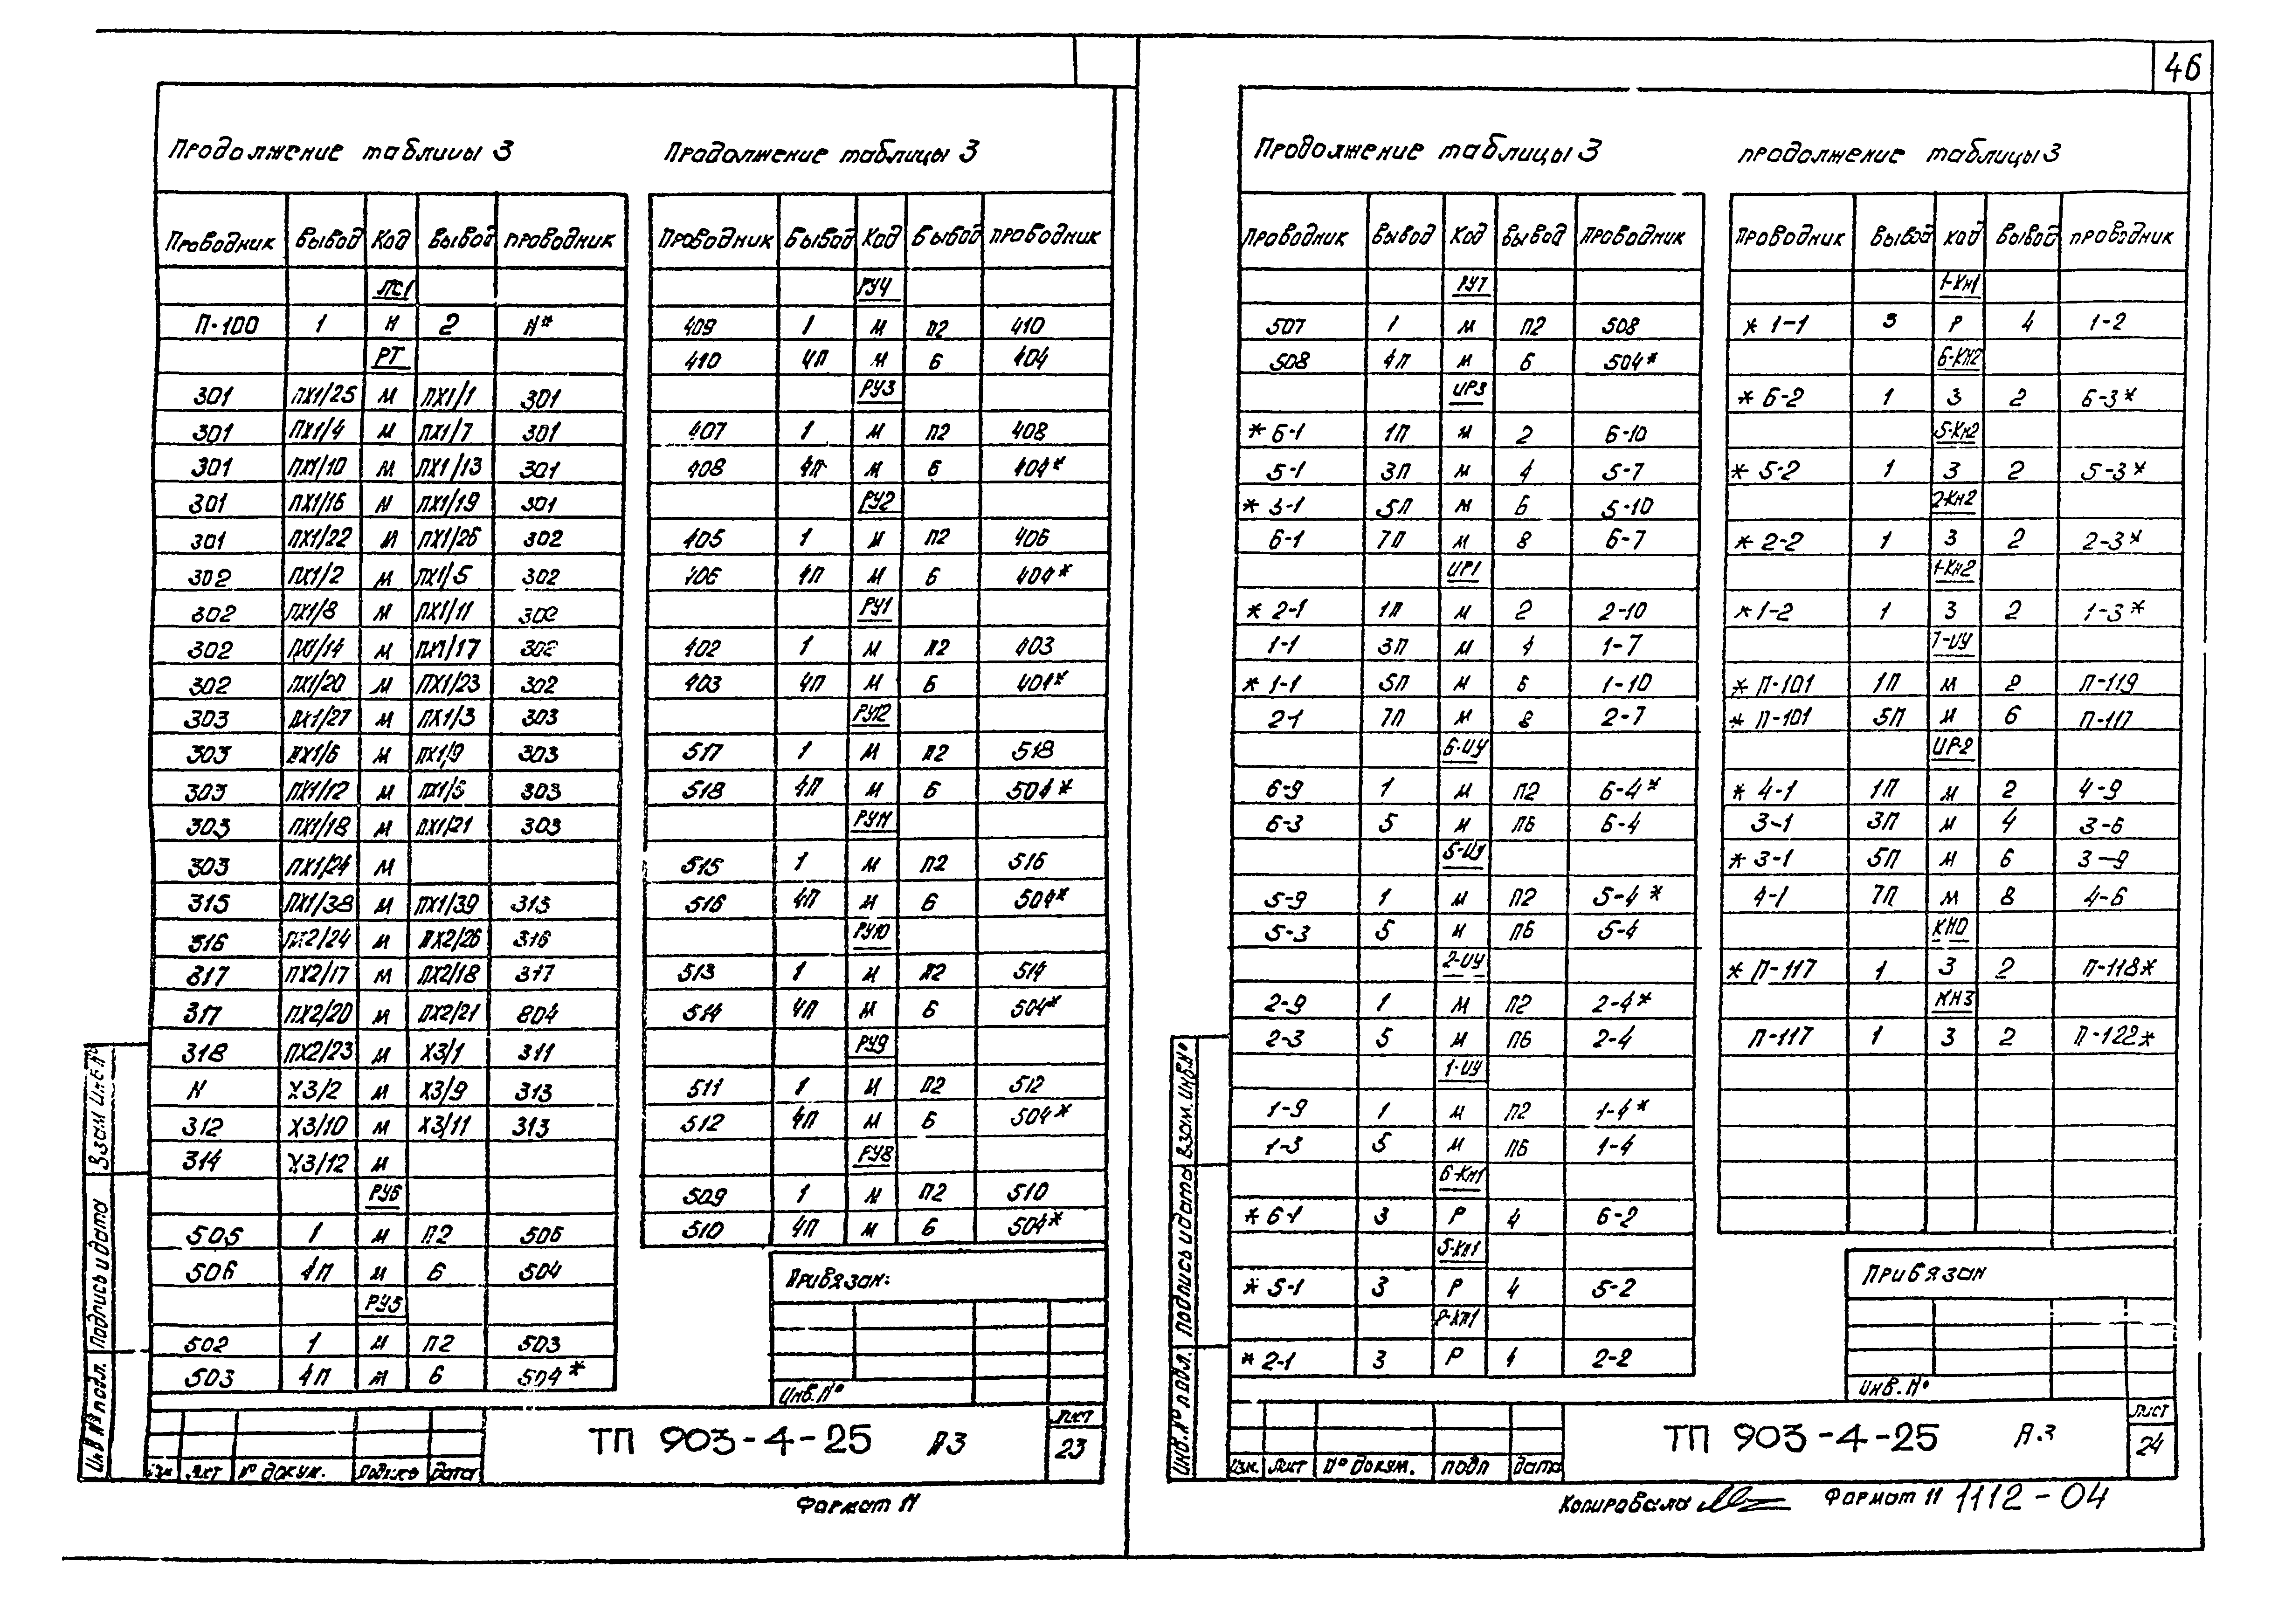 46
Продолжение таблицы 3
Проводник Вывод Код Вывод Проводник
ЛС1
П-100 1 Н 2 Н*
РТ
301 ПХ1/25 М ПХ1/1 301
301 ПХ1/4 М ПХ1/7 301
301 ПХ1/10 М ПХ1/13 301
301 ПХ1/16 М ПХ1/19 301
301 ПХ1/22 М ПХ1/26 302
302 ПХ1/2 М ПХ1/5 302
302 ПХ1/8 М ПХ1/11 302
302 ПХ1/14 М ПХ1/17 302
302 ПХ1/20 М ПХ1/23 302
303 ПХ1/27 М ПХ1/3 303
303 ПХ1/6 М ПХ1/9 303
303 ПХ1/12 М 303
303 ПХ1/18 М ПХ1/21 303
303 ПХ1/24 М
315 ПХ1/38 М ПХ1/39 315
316 ПХ2/24 М ПХ2/26 316
317 ПХ2/17 М ПХ2/18 317
317 ПХ2/20 М ПХ2/21 804
318 ПХ2/23 М Х3/1 311
N Х3/2 М Х3/9 313
312 Х3/10 М Х3/11 313
314 Х3/12 М
РУ6
505 1 М П2 506
506 4П М 6 504
РУ5
502 1 М П2 503
503 4П М 6 504*
Продолжение таблицы 3
Проводник Вывод Код Вывод Проводник
РУ4
409 1 М П2 410
410 4П М 6 404
РУ3
407 1 М П2 408
408 4П М 6 404*
РУ2
405 1 М П2 406
406 4П М 6 404*
РУ1
402 1 М П2 403
403 4П М 6 404*
РУ12
517 1 М П2 518
518 4П М 6 504*
РУ11
515 1 М П2 516
516 4П М 6 504*
РУ10
513 1 М П2 514
514 4П М 6 504*
РУ9
511 1 М П2 512
512 4П М 6 504*
РУ8
509 1 М П2 510
510 4П М 6 504*
Привязан:
Инв.№
ТП 903-4-25 А3
Лист
23
Изм Лист № докум. Подпись Дата
Инв № подл. Подпись и дата Взам инв №
Формат 11
Продолжение таблицы 3
Проводник Вывод Код Вывод Проводник
РУ7
507 1 М П2 508
508 4П М 6 504*
ИР3
* 6-1 1П М 2 6-10
5-1 3П М 4 5-7
5П М 6 5-10
6-1 7П М 8 6-7
ИР1
* 2-1 1П М 2 2-10
1-1 3П М 4 1-7
* 1-1 5П М 6 1-10
2-1 7П М 8 2-7
6-ИУ
6-9 1 М П2 6-4*
6-3 5 М П6 6-4
5-ИУ
5-9 1 М П2 5-4*
5-3 5 М П6 5-4
2-ИУ
2-9 1 М П2 2-4*
2-3 5 М П6 2-4
1-ИУ
1-9 1 М П2 1-4*
1-3 5 М П6 1-4
6-Кн1
* 6-1 3 Р 4 6-2
5-Кн1
* 5-1 3 Р 4 5-2
2-Кн1
* 2-1 3 Р 4 2-2
продолжение таблицы 3
Проводник Вывод код Вывод проводник
1-Кн1
* 1-1 3 Р 4 1-2
6-Кн2
* 6-2 1 З 2 6-3*
5-Кн2
* 5-2 1 З 2 5-3*
2-Кн2
* 2-2 1 З 2 2-3*
1-Кн2
* 1-2 1 З 2 1-3*
1-ИУ
* П-101 1П М 2 П-119
* П-101 5П М 6 П-117
ИР2
* 4-1 1П М 2 4-9
3-1 3П М 4 3-6
* 3-1 5П М 6 3-9
4-1 7П М 8 4-6
КНО
* П-117 1 З 2 П-118*
КНЗ
П-117 1 З 2 П-122*
Привязан
Инв.№
ТП 903-4-25 А.3
Лист
24
Изм. Лист № докум. подп дата
Инв.№ подл. Подпись и дата Взам. инв.№
Копировала Формат 11 1112-04